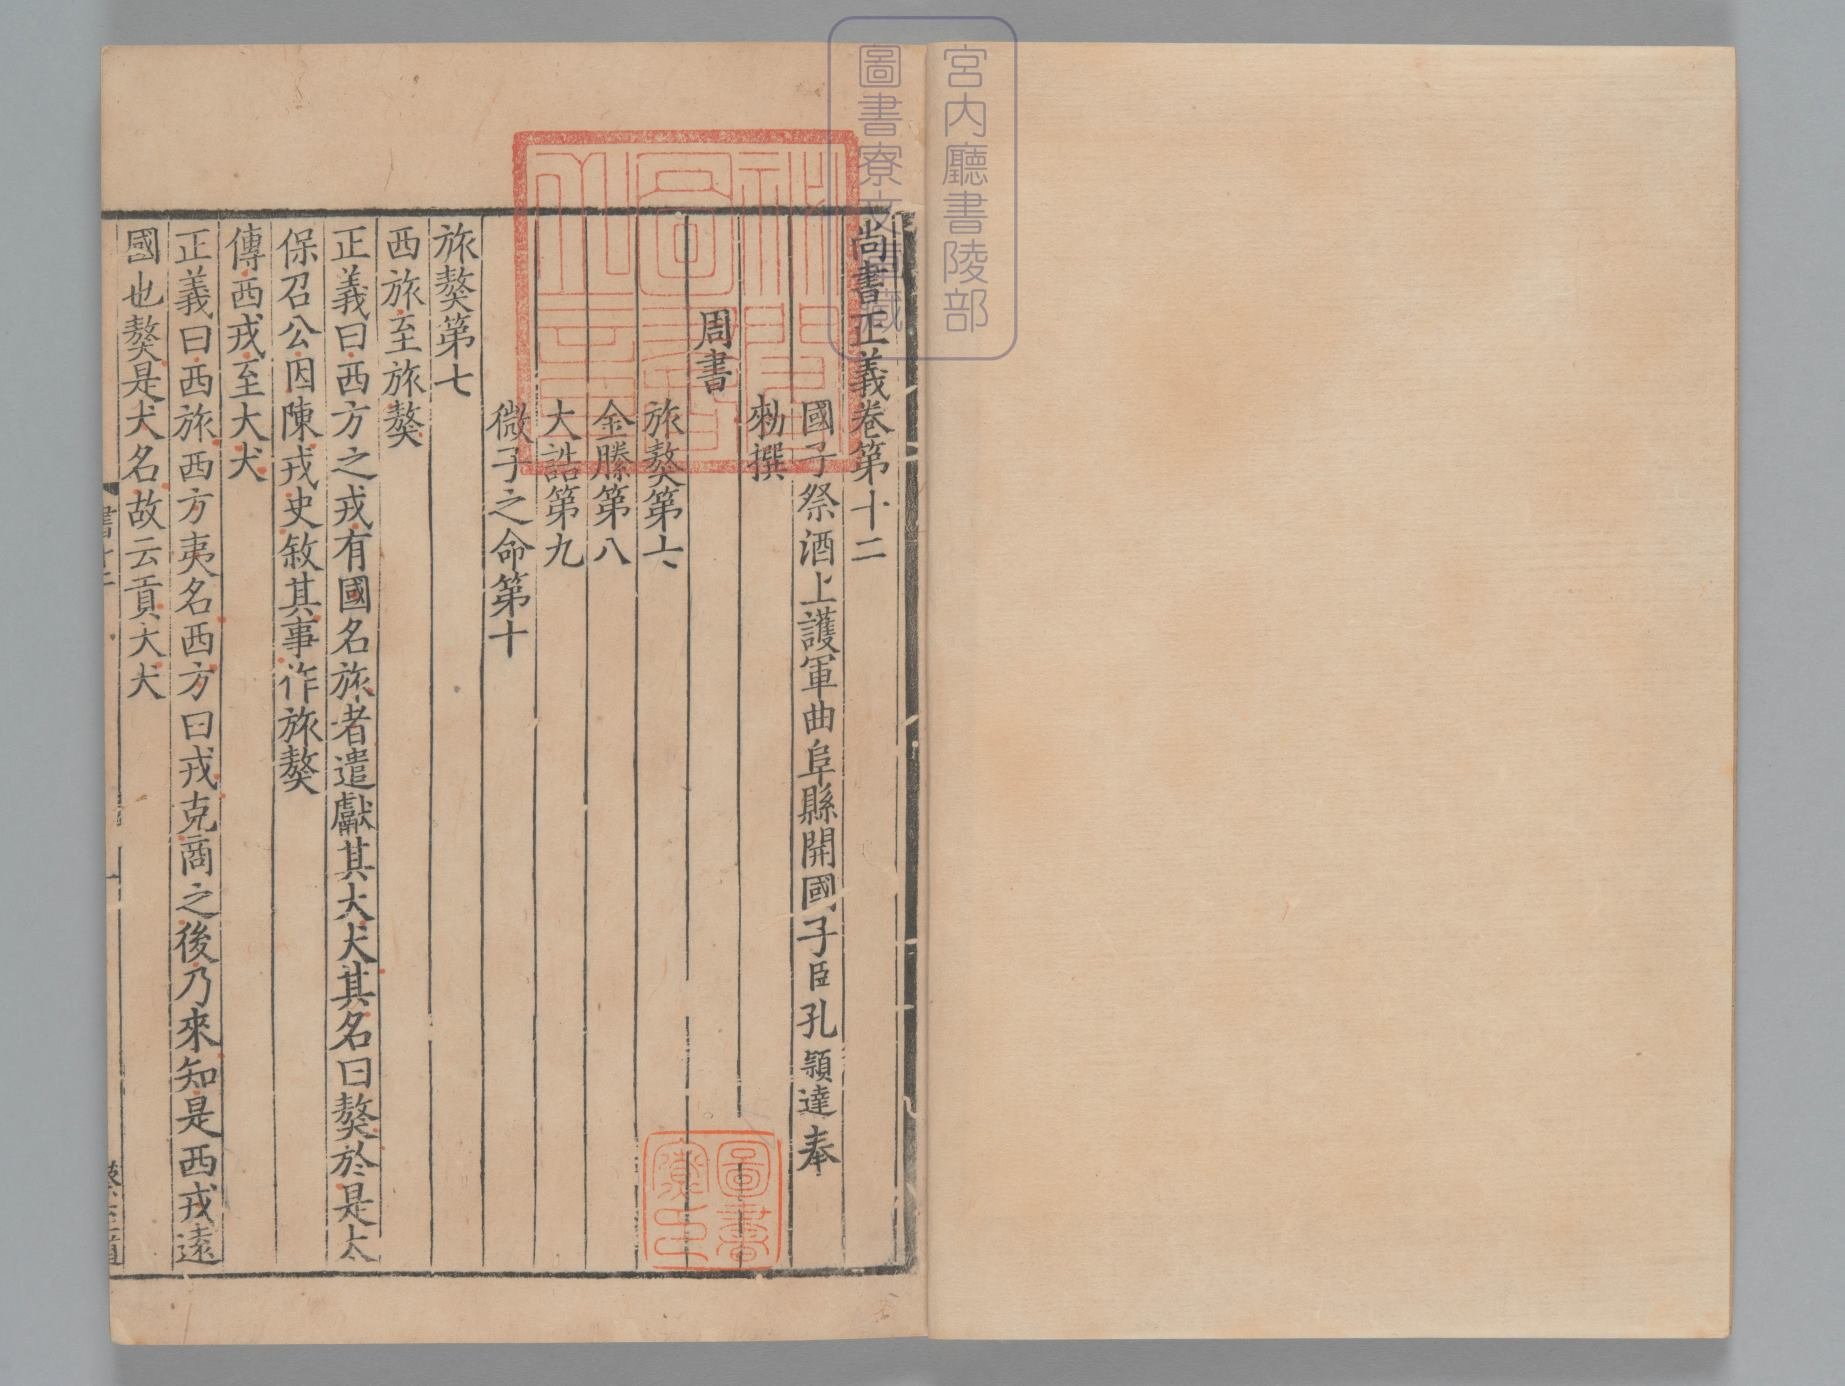 宮內廳書陵部
尚書正義卷第十二
國子祭酒上護軍曲阜縣開國子臣孔穎達奉
勑撰
周書
旅獒第六
金縢第八
大誥第九
微子之命第十
旅獒第七
西旅至旅獒
正義曰西方之戎有國名旅者遣獻其大犬其名曰獒於是太
保召公因陳戎史敘其事作旅獒
傳西戎至大犬
正義曰西旅西方夷名西方曰戎克商之後乃來知是西戎遠
國也獒是犬名故云貢大犬
圖書寮印